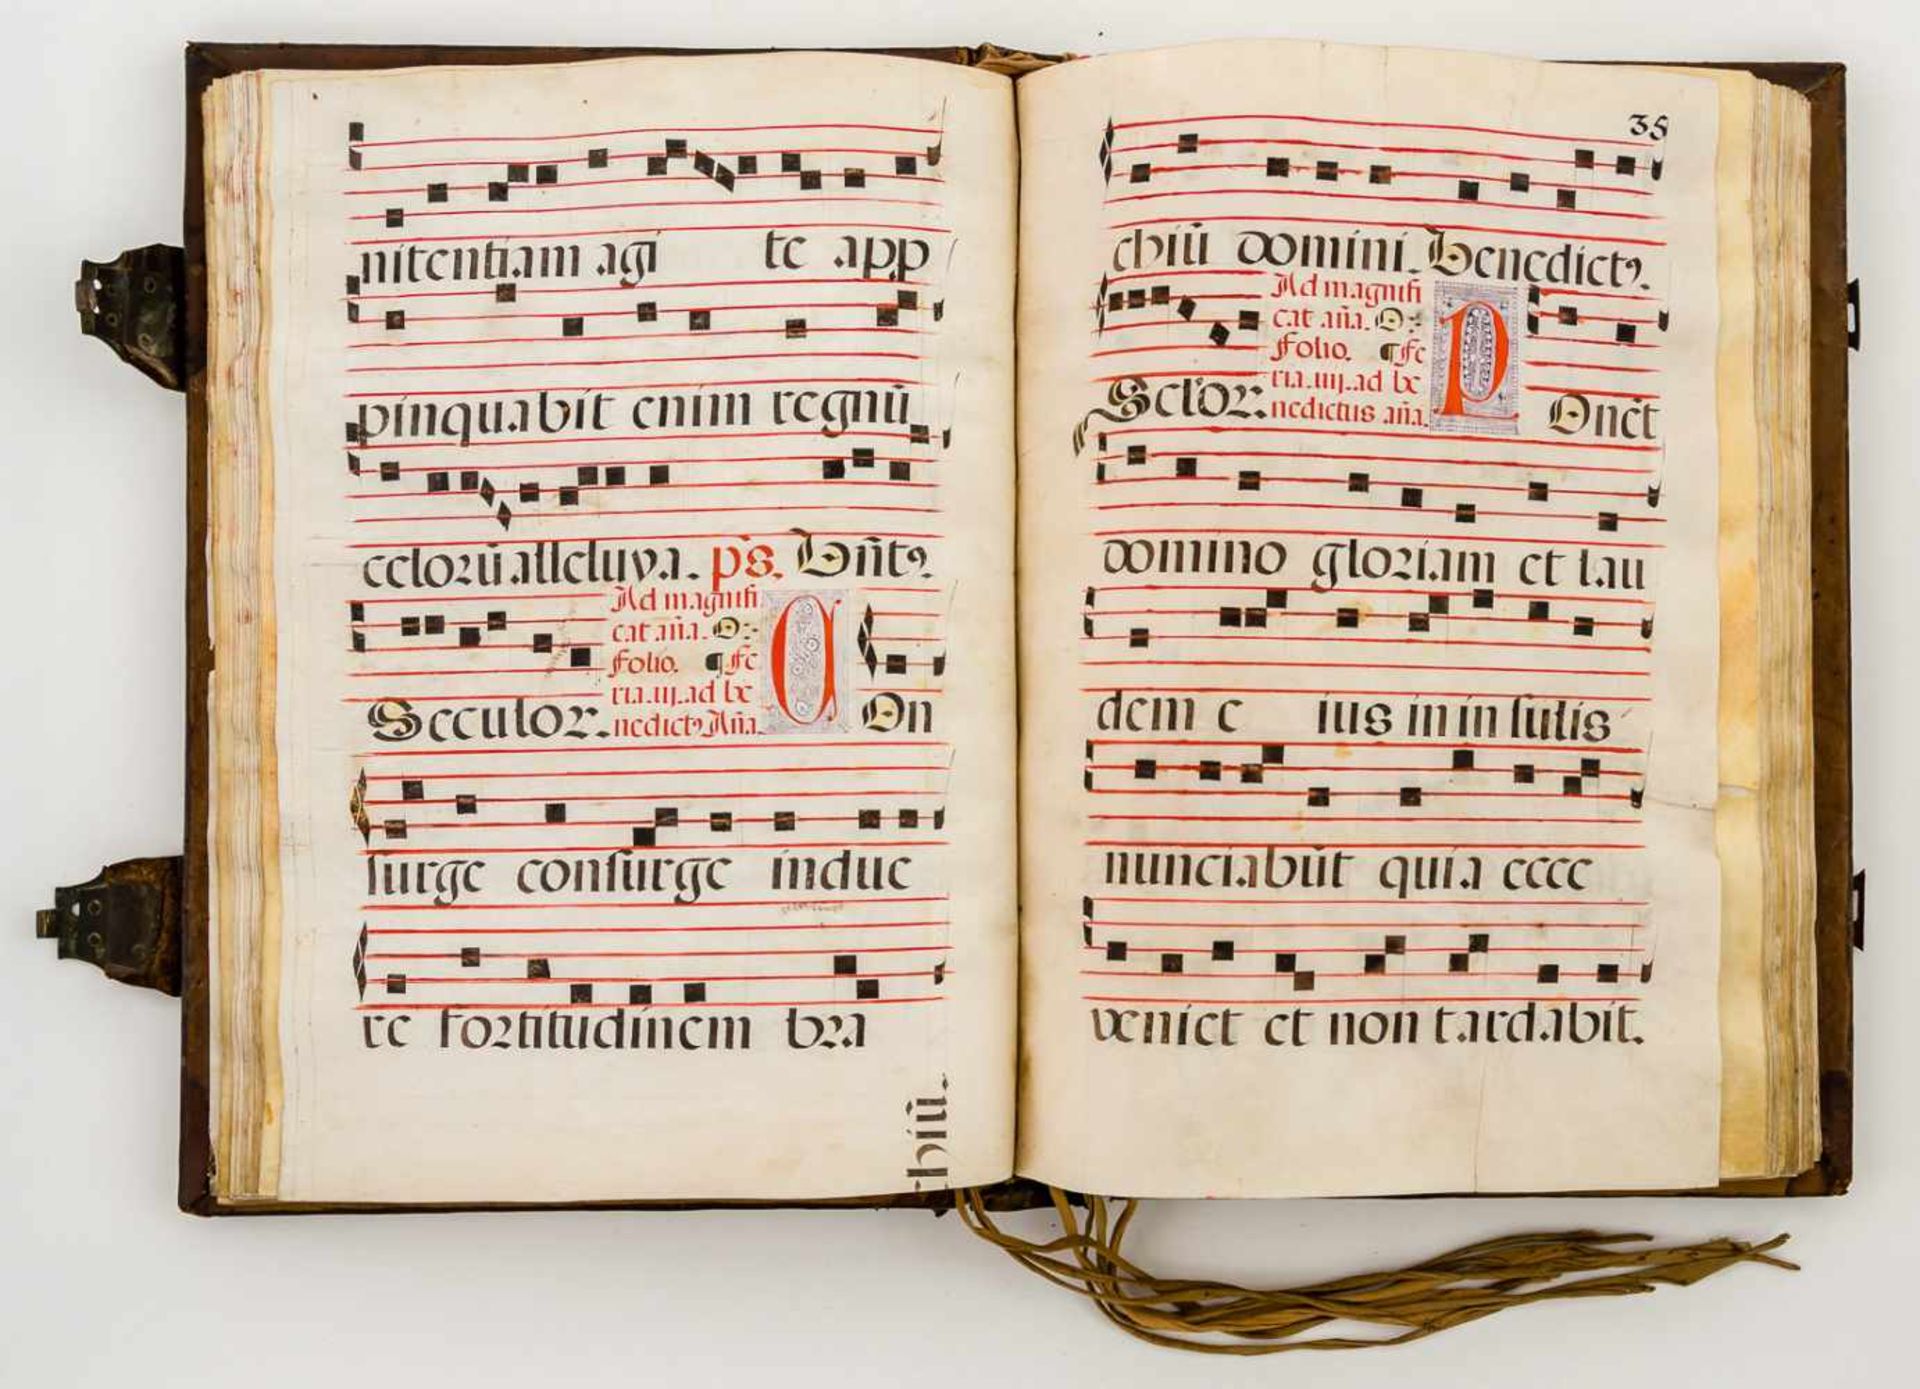 nitentiam agi te app
pinquabit enim regnū
celorū alleluya. ps. Bn̄tꝰ.
Ad magnifi
cat an̄a. O:
folio. ¶ fe
ria. iij. ad be
nedictꝰ An̄a.
Seculor. C On
surge consurge indue
re fortitudinem bra
chiū.
35
chiū domini. Benedictꝰ.
Ad magnifi
cat an̄a. O:
folio. ¶ fe
ria. iiij. ad be
nedictus an̄a.
Sc̄lor. P On̄t
domino gloriam et lau
dem e ius in in sulis
nunciabūt quia ecce
veniet et non tardabit.